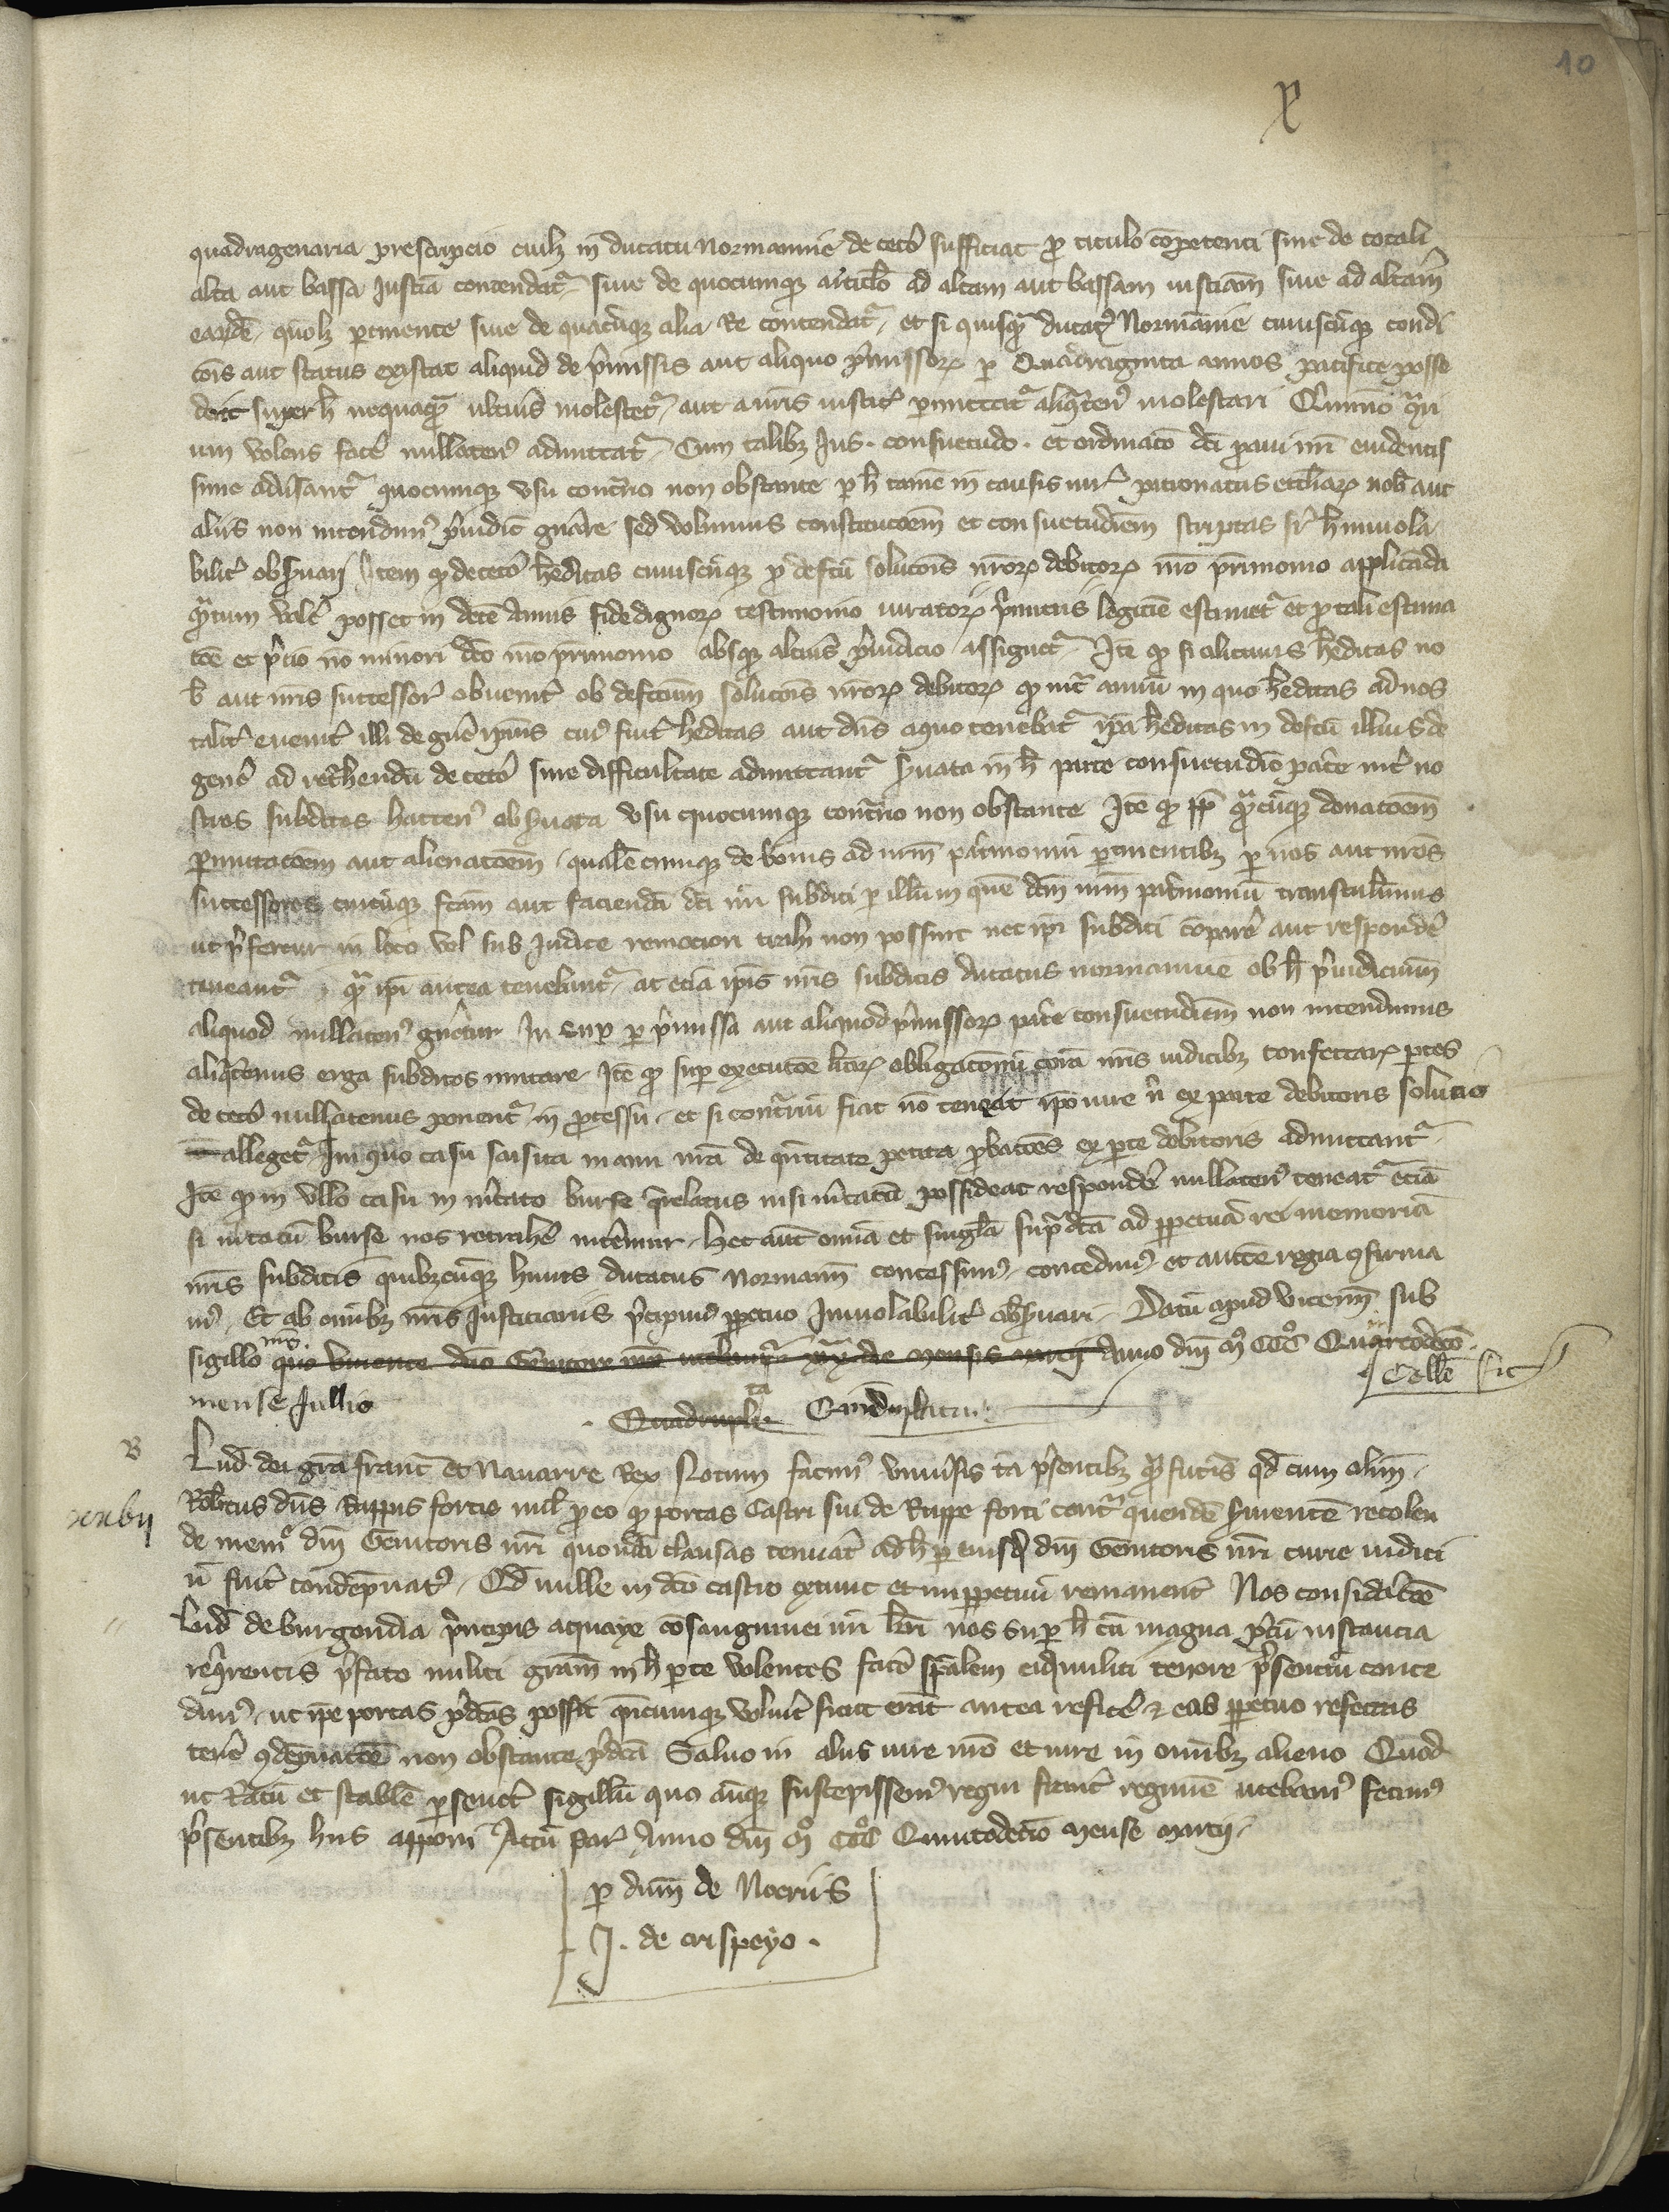 10
X
quadragenaria prescripcio cuilz in ducatu Normannie de ceto sufficiat pro titulo competenti sive de totali
alta aut bassa Justicia contendatur sive de quocumque articulo ad altam aut bassam iusticiam sive ad altam
earumdem quolz pertinente sive de quacumque alia Re contendatur et si quisquam ducatus Normannie cuiuscumque condi
cionis aut status existat aliquid de premissis aut aliquo premissorum per Quadraginta annos pacifice posse
derit super hoc nequaquam ulterius molestetur aut a nostris iusticiariis permittatur aliquatenus molestari Quinimo contrari
um volens facere nullatenus admittatur Cum talibus Jus consuetudo et ordinacio dicti proavi nostri evidentis
sime adversantur quocumque usu contrario non obstante per hoc tamen in causis iuris patronatus ecclesiarum nobis aut
aliis non intendimus preiudicium generare sed volumus constitucionem et consuetudinem scriptas super hoc inviola
biliter observari Item quod de cetero hereditas cuiuscumque pro defectu solucionis nostrorum debitorum nostro patrimonio applicanda
quantum valere posset in decem annis fidedignorum testimonio iuratorum primitus legitime estimetur et pro tali estima
cione et precio non minori dicto nostro patrimonio absque alterius preiudicio assignetur Item quod si alicuius hereditas no
bis aut nostris successoribus obvenerit ob defectum solucionis nostrorum debitorum quod infra annum in quo hereditas ad nos
taliter evenerit illi de genere ipsius cuius fuerit hereditas aut dominus a quo tenebatur ipsa hereditas in defectum illius de
genere ad retrahendum de cetero sine difficultate admittantur servata in hoc parte consuetudine patrie inter no
stros subditos hactenus observata usu quocumque contrario non obstante Item quod propter quamcumque donacionem
permutacionem aut alienacionem qualemcumque de bonis ad nostrum patrimonium pertinentibus per nos aut nostros
successores cuicumque factam aut faciendam dicti nostri subditi per illum in quem dictum nostrum patrimonium transtulerimus
ut prefertur in loco vel sub Judice remociori trahi non possint nec ipsi subditi comparere aut respondere
teneantur quam ipsi antea tenebantur ac etiam ipsis nostris subditis ducatus normannie ob hoc preiudicium
aliquod nullatenus generetur In super per premissa aut aliquod premissorum patrie consuetudinem non intendimus
aliquatenus erga subditos mutare Item quod super execucione litterarum obligacionum coram nostris iudicibus confectarum partes
de cetero nullatenus ponentur in processu et si contrarium fiat non teneat ipso iure nisi ex parte debitoris solucio
allegetur In quo casu saisita manu nostra de quantitate petita probaciones ex parte debitoris admittantur
Item quod in ullo casu in mercato burse querelatus nisi mercatum possideat respondere nullatenus teneatur etiam
si mercatum burse nos retrahere intendimur Hec autem omnia et singula supradicta ad perpetuam rei memoriam
nostris subditis quibuscumque huius ducatus Normannie concessimus concedimus et auctoritate regia confirma
mus Et ab omnibus nostris Justiciariis precipimus perpetuo Inviolabiliter observari Datum apud Vicennas sub
sigillo nostro quo vivente domino Genitore nostro utebamur die mensis marcii Anno domini Mo CCCo Quartodecimo
mense Jullio
Collatio sic
Quadruplicata
B
xxxvii
Lud dei gracia francie et Navarre Rex Notum facimus universis tam presentibus quam futuris quod cum olim
Robertus dominus Ruppis fortis miles pro eo quod portas Castri sui de Ruppe forti contra quendam servientem recolen
de memorie domini Genitoris nostri quondam clausas tenuerat ad hoc per eiusdem domini Genitoris nostri curie iudici
um fuerit condempnatus Quod nulle in dicto castro extunc et imperpetuum remanerent Nos consideracione
Lud de burgondia principis Achaye consanguinei nostri karissimi nos super hoc cum magna precum instancia
requirentis prefato militi graciam in hac parte volentes facere specialem eidem militi tenore presentium conce
dimus ut ipse portas predictas possit quandocumque voluerit sicut erant antea reficere et eas perpetuo refectas
tenere condempnacione non obstante predicta Salvo in aliis iure nostro et iure in omnibus alieno Quod
ut Ratum et stabile perseveret sigillum quo antequam suscepissemus regni francie regimen utebamur fecimus
presentibus hiis apponi Actum Parisius Anno domini Mo CCCo Quintodecimo Mense Marcii
per dominum de Noeriis
J. de crispeyo.